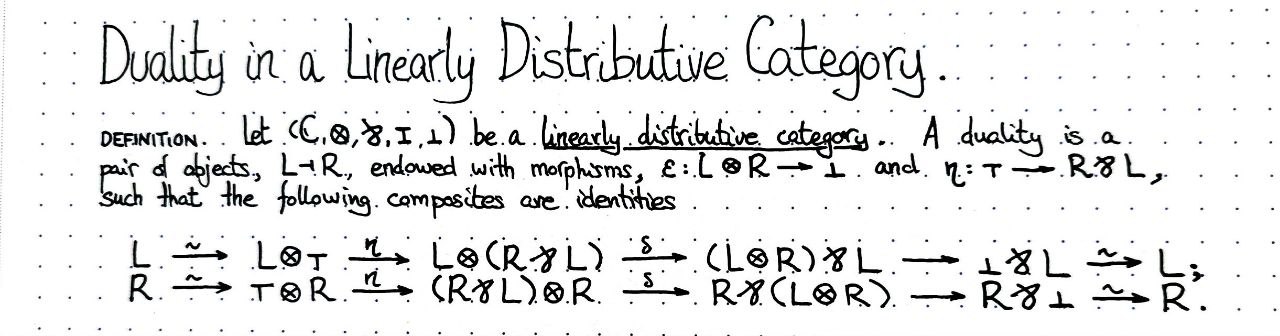 Duality in a Linearly Distributive Category.
DEFINITION. Let (ℂ,⊗,⅋,I,⊥) be a linearly distributive category. A duality is a
pair of objects, L⊣R, endowed with morphisms, ε: L⊗R → ⊥ and η: ⊤ → R⅋L,
such that the following composites are identities
L ~→ L⊗⊤ η→ L⊗(R⅋L) δ→ (L⊗R)⅋L → ⊥⅋L ~→ L;
R ~→ ⊤⊗R η→ (R⅋L)⊗R δ→ R⅋(L⊗R) → R⅋⊥ ~→ R.